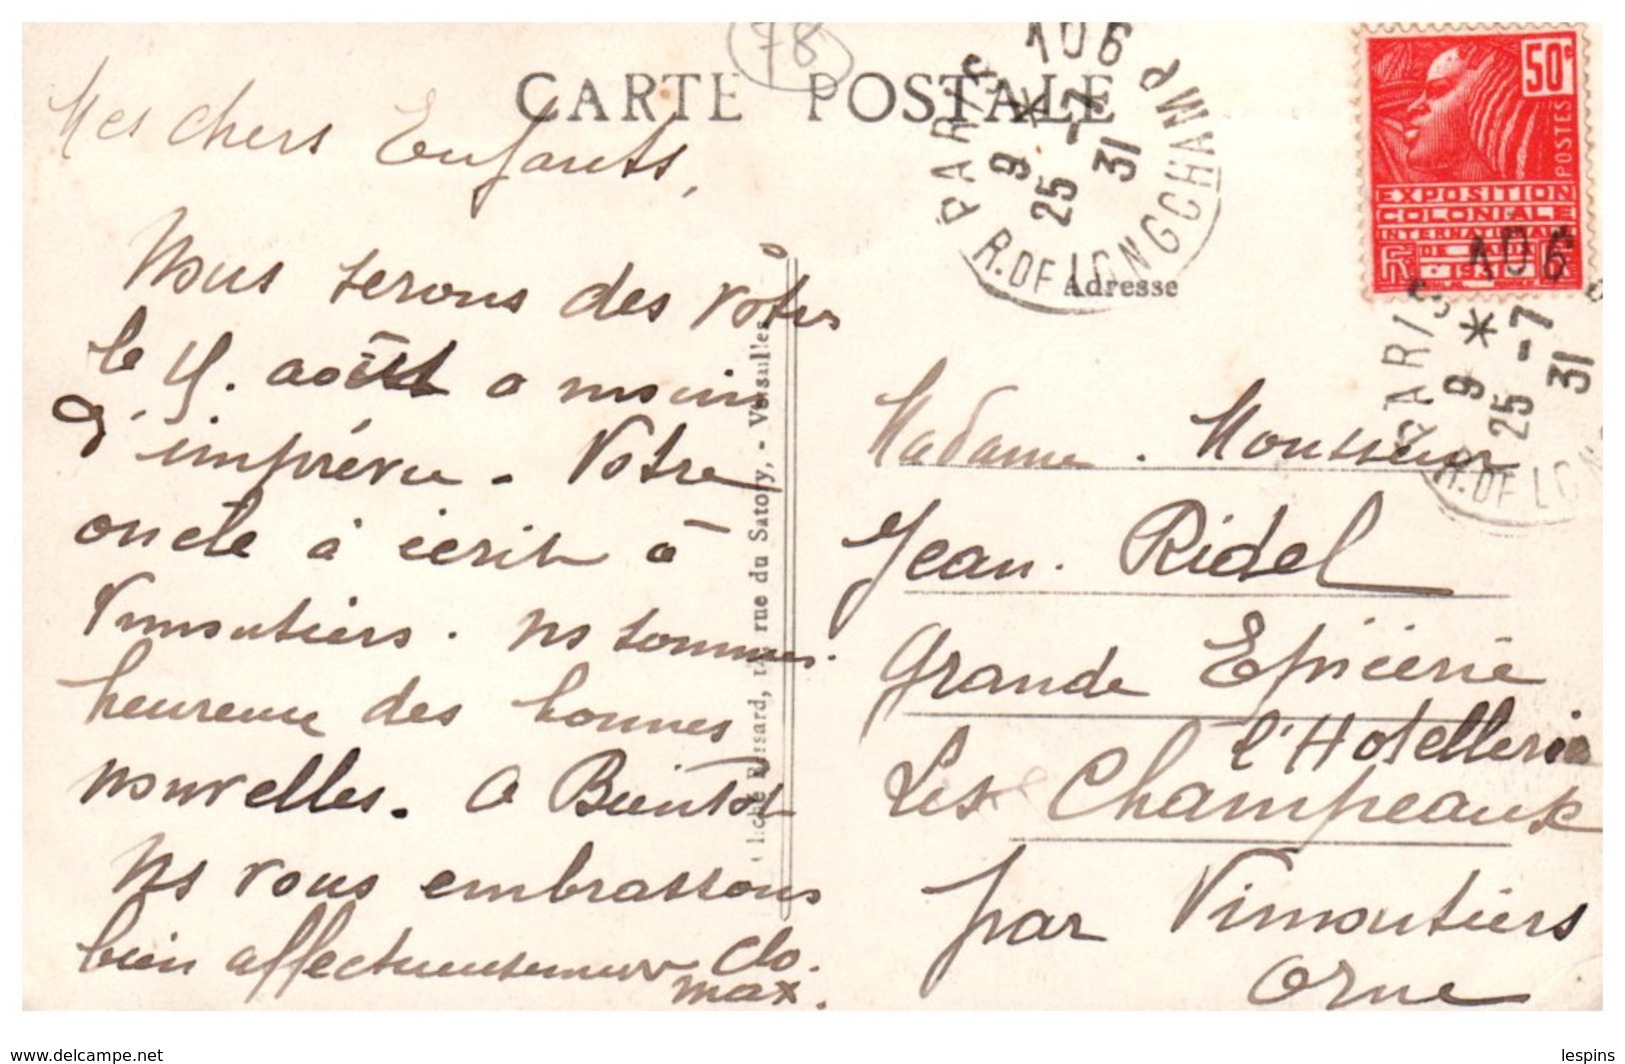 78
CARTE POSTALE
Mes chers Enfants,
Nous serons des votres
le 4. août a moins
d'imprévu - Votre
oncle à écrit à
Vimoutiers. ns sommes
heureux des bonnes
nouvelles. a Bientot
Ns vous embrassons
bien affectueusement Clo.
max.
rue du Satory, - Versailles
PARIS 106 R. DE LONGCHAMP
9 * 25 -7 31
Adresse
50c
POSTES
EXPOSITION
COLONIALE
INTERNATIONALE
PARIS 106 R. DE LONG
9 * 25 -7 31
Madame. Monsieur
Jean. Ridel
Grande Epicerie
l'Hotellerie
Les Champeaux
par Vimoutiers
Orne
www.delcampe.net
lespins